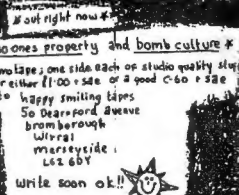 * out right now *
no ones property and bomb culture *
two tapes one side each of studio quality stuff
for either £1.00 + sae or a good C-60 + sae
to happy smiling tapes
50 Dearnford aveave
bromborough
wirral
merseyside
L62 6DY
write soon ok!!